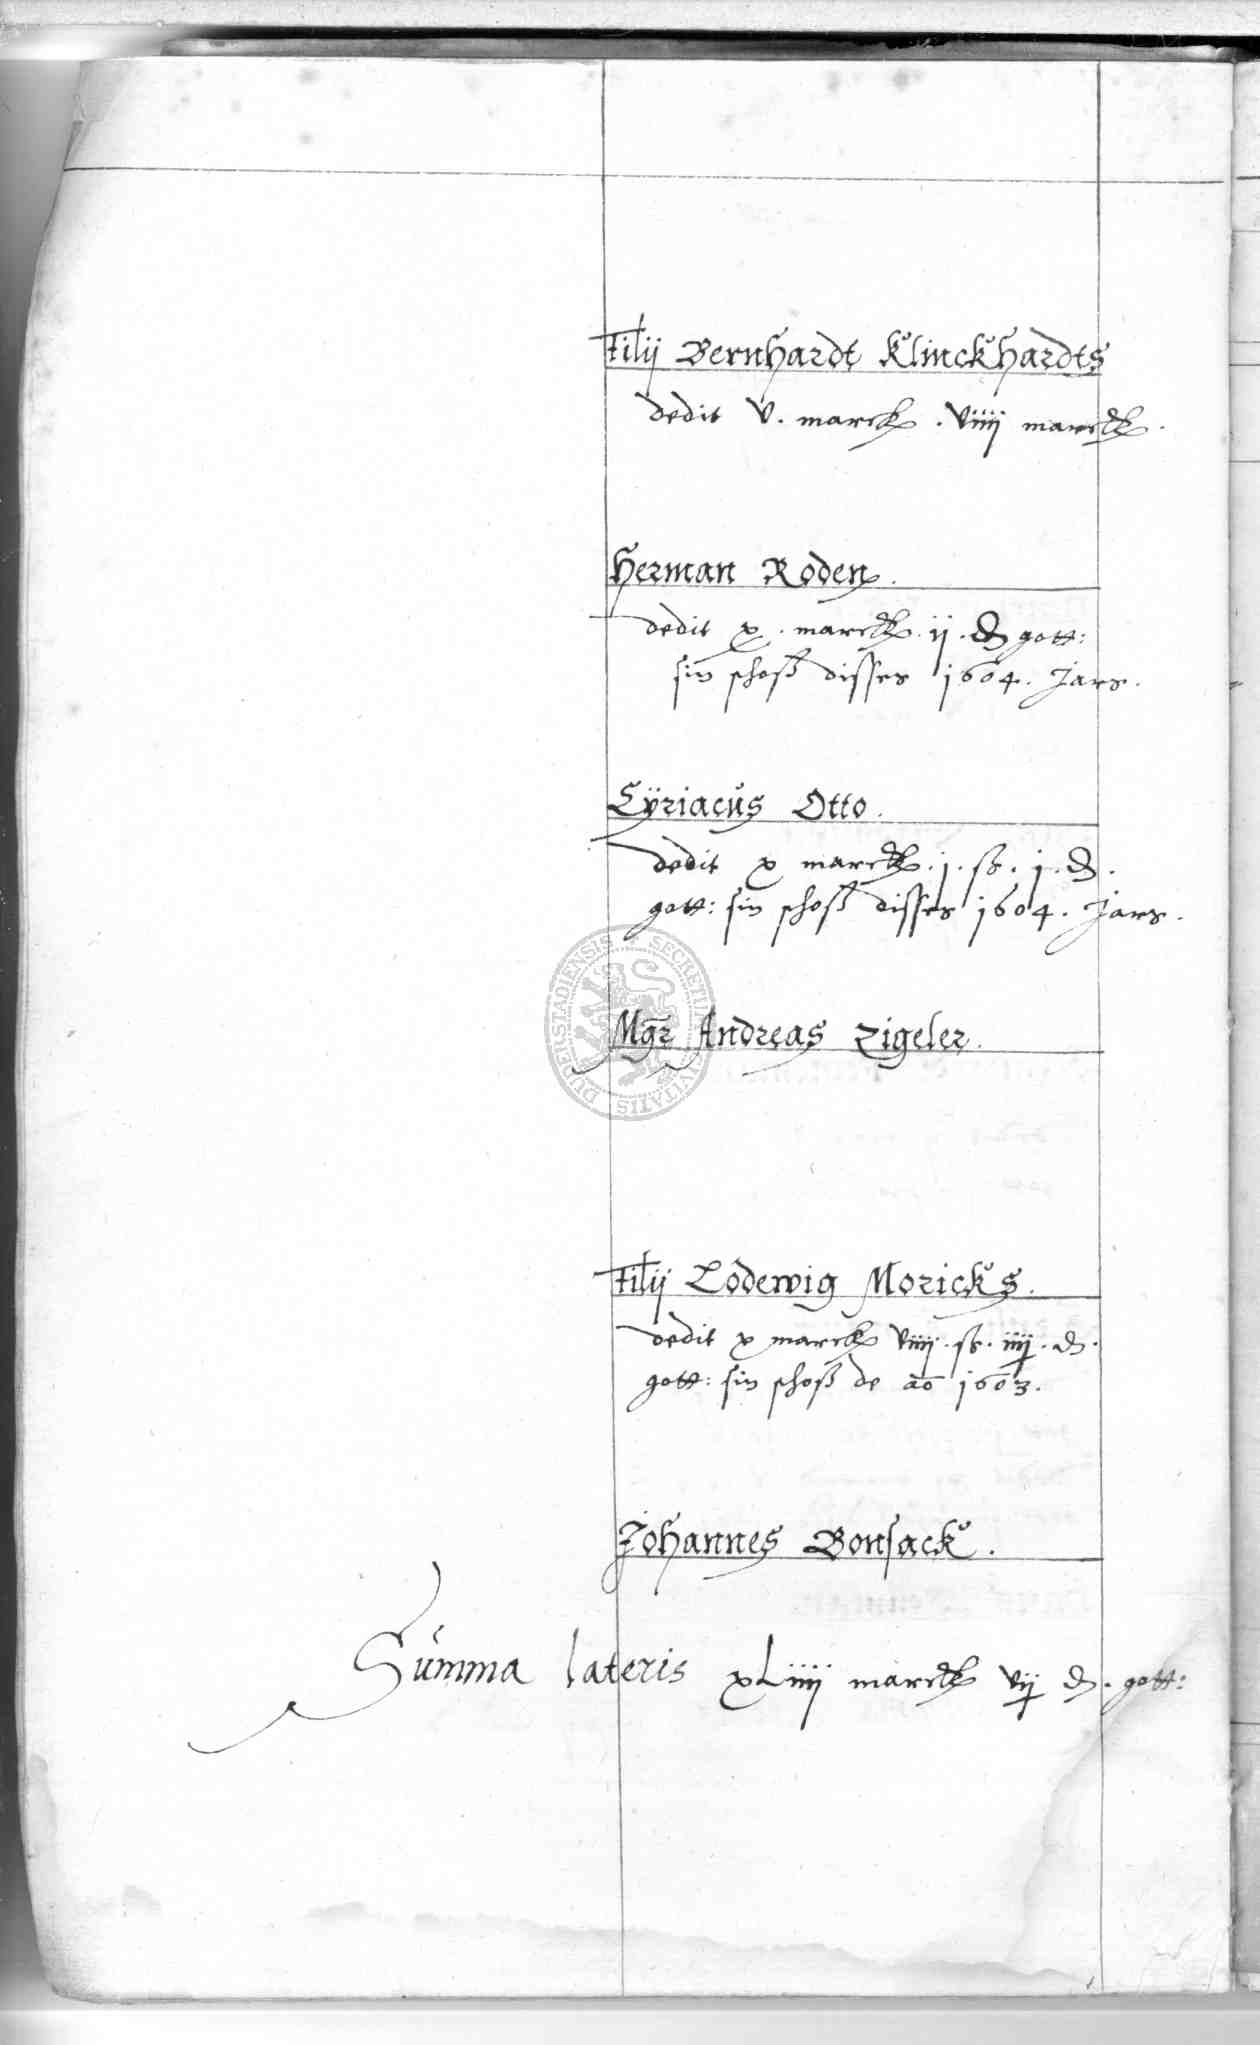 Filij Bernhardt Klinckhardts
dedit v. marck. viiij marck.
Herman Roden.
dedit x. marck. ij. ₰ gott:
sin schoß disses 1604. Jars.
Cÿriacus Otto.
dedit x marck. j. ß. j. ₰.
gott: sin schoß disses 1604. Jars.
Mgr Andreas Zigeler.
Filij Lodewig Moricks.
dedit x marck viiij. ß. iiij. ₰.
gott: sin schoß de ao 1603.
Johannes Bonsack.
Summa lateris xLiiij marck vij ₰. gott:
SECRETUM CIVITATIS DUDERSTADIENSIS